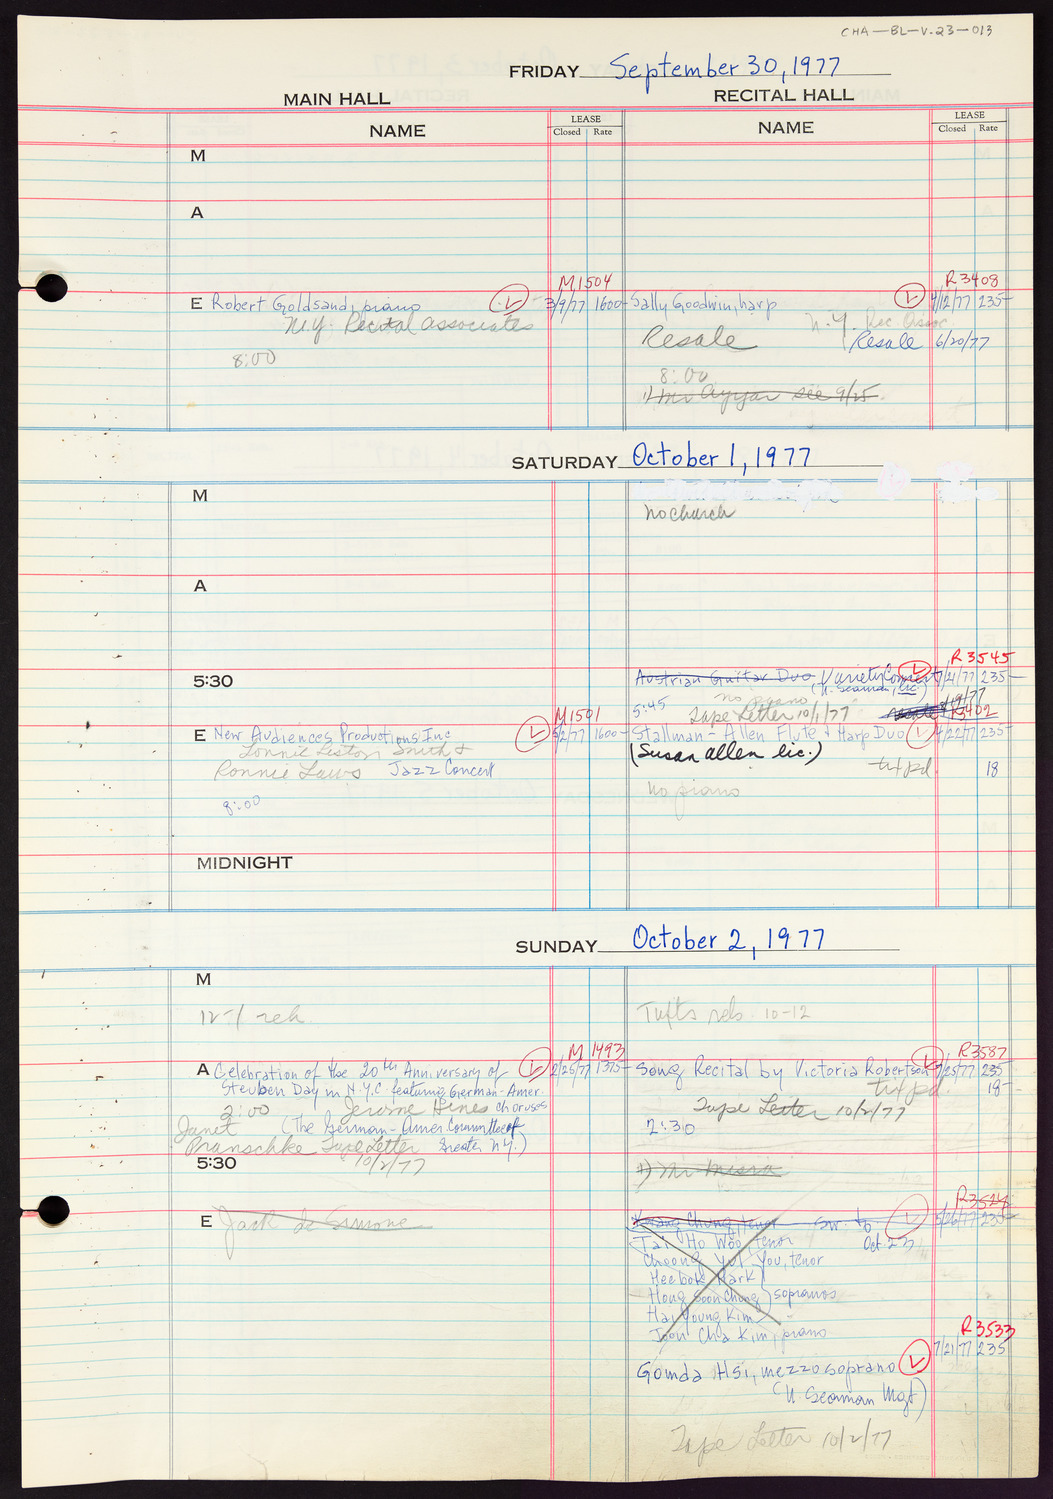 CHA-BL-V.23-013
FRIDAY September 30, 1977
MAIN HALL RECITAL HALL
NAME LEASE Closed Rate NAME LEASE Closed Rate
M
A
M1504 R3408
E Robert Goldsand, piano 3/9/77 1600- Sally Goodwin, harp 4/12/77 235-
N.Y. Recital Associates N.Y. Rec Assoc
Resale Resale 6/20/77
8:00
8:00
1) Mr Ayyar see 9/25
SATURDAY October 1, 1977
M
no church
A
R3545
5:30 Austrian Guitar Duo Variety Concert 7/21/77 235-
(N. Seaman, lic.)
no piano
5:45 Tape Letter 10/1/77
M1501 R3402
E New Audiences Productions Inc 5/2/77 1600- Stallman-Allen Flute & Harp Duo 4/22/77 235-
Lonnie Liston Smith & (Susan Allen lic.)
Ronnie Laws Jazz Concert tix pd. 18
8:00 no piano
MIDNIGHT
SUNDAY October 2, 1977
M
12-1 reh Tufts reh. 10-12
M 1493 R3587
A Celebration of the 20th Anniversary of 2/25/77 1375- Song Recital by Victoria Robertson 7/25/77 235
Steuben Day in N.Y.C featuring German-Amer. tix pd. 18-
2:00 Jerome Hines choruses Tape Letter 10/2/77
Janet (The German-Amer. Committee of 2:30
Pranschke Tape Letter Greater N.Y.)
10/2/77
5:30 1) Mr Misra
R3524
E Jack de Simone Kwang Chung, tenor sw. to 235-
Tai Ho Woo, tenor Oct 23
Choong Yul You, tenor
Heebok Park
Hong Soon Chung sopranos
Hai Young Kim
Joon Cha Kim, piano
R3533
7/21/77 235
Gomda Hsi, mezzo soprano
(N Seaman Mgt)
Tape Letter 10/2/77